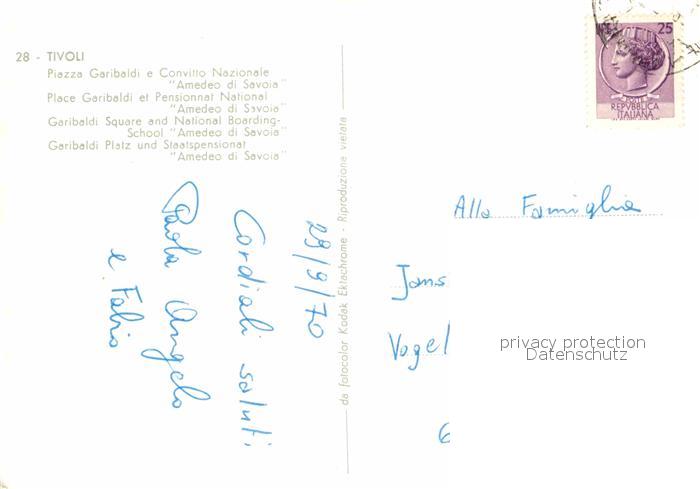 28 - TIVOLI
Piazza Garibaldi e Convitto Nazionale
"Amedeo di Savoia"
Place Garibaldi et Pensionnat National
"Amedeo di Savoia"
Garibaldi Square and National Boarding-
School "Amedeo di Savoia"
Garibaldi Platz und Staatspensionat
"Amedeo di Savoia"
29/9/70
Cordiali saluti
Paola Angelo
e Fabio
da fotocolor Kodak Ektachrome - Riproduzione vietata
25
POSTE
REPVBBLICA
ITALIANA
Alla Famiglia
Jans
Vogel
6
privacy protection
Datenschutz